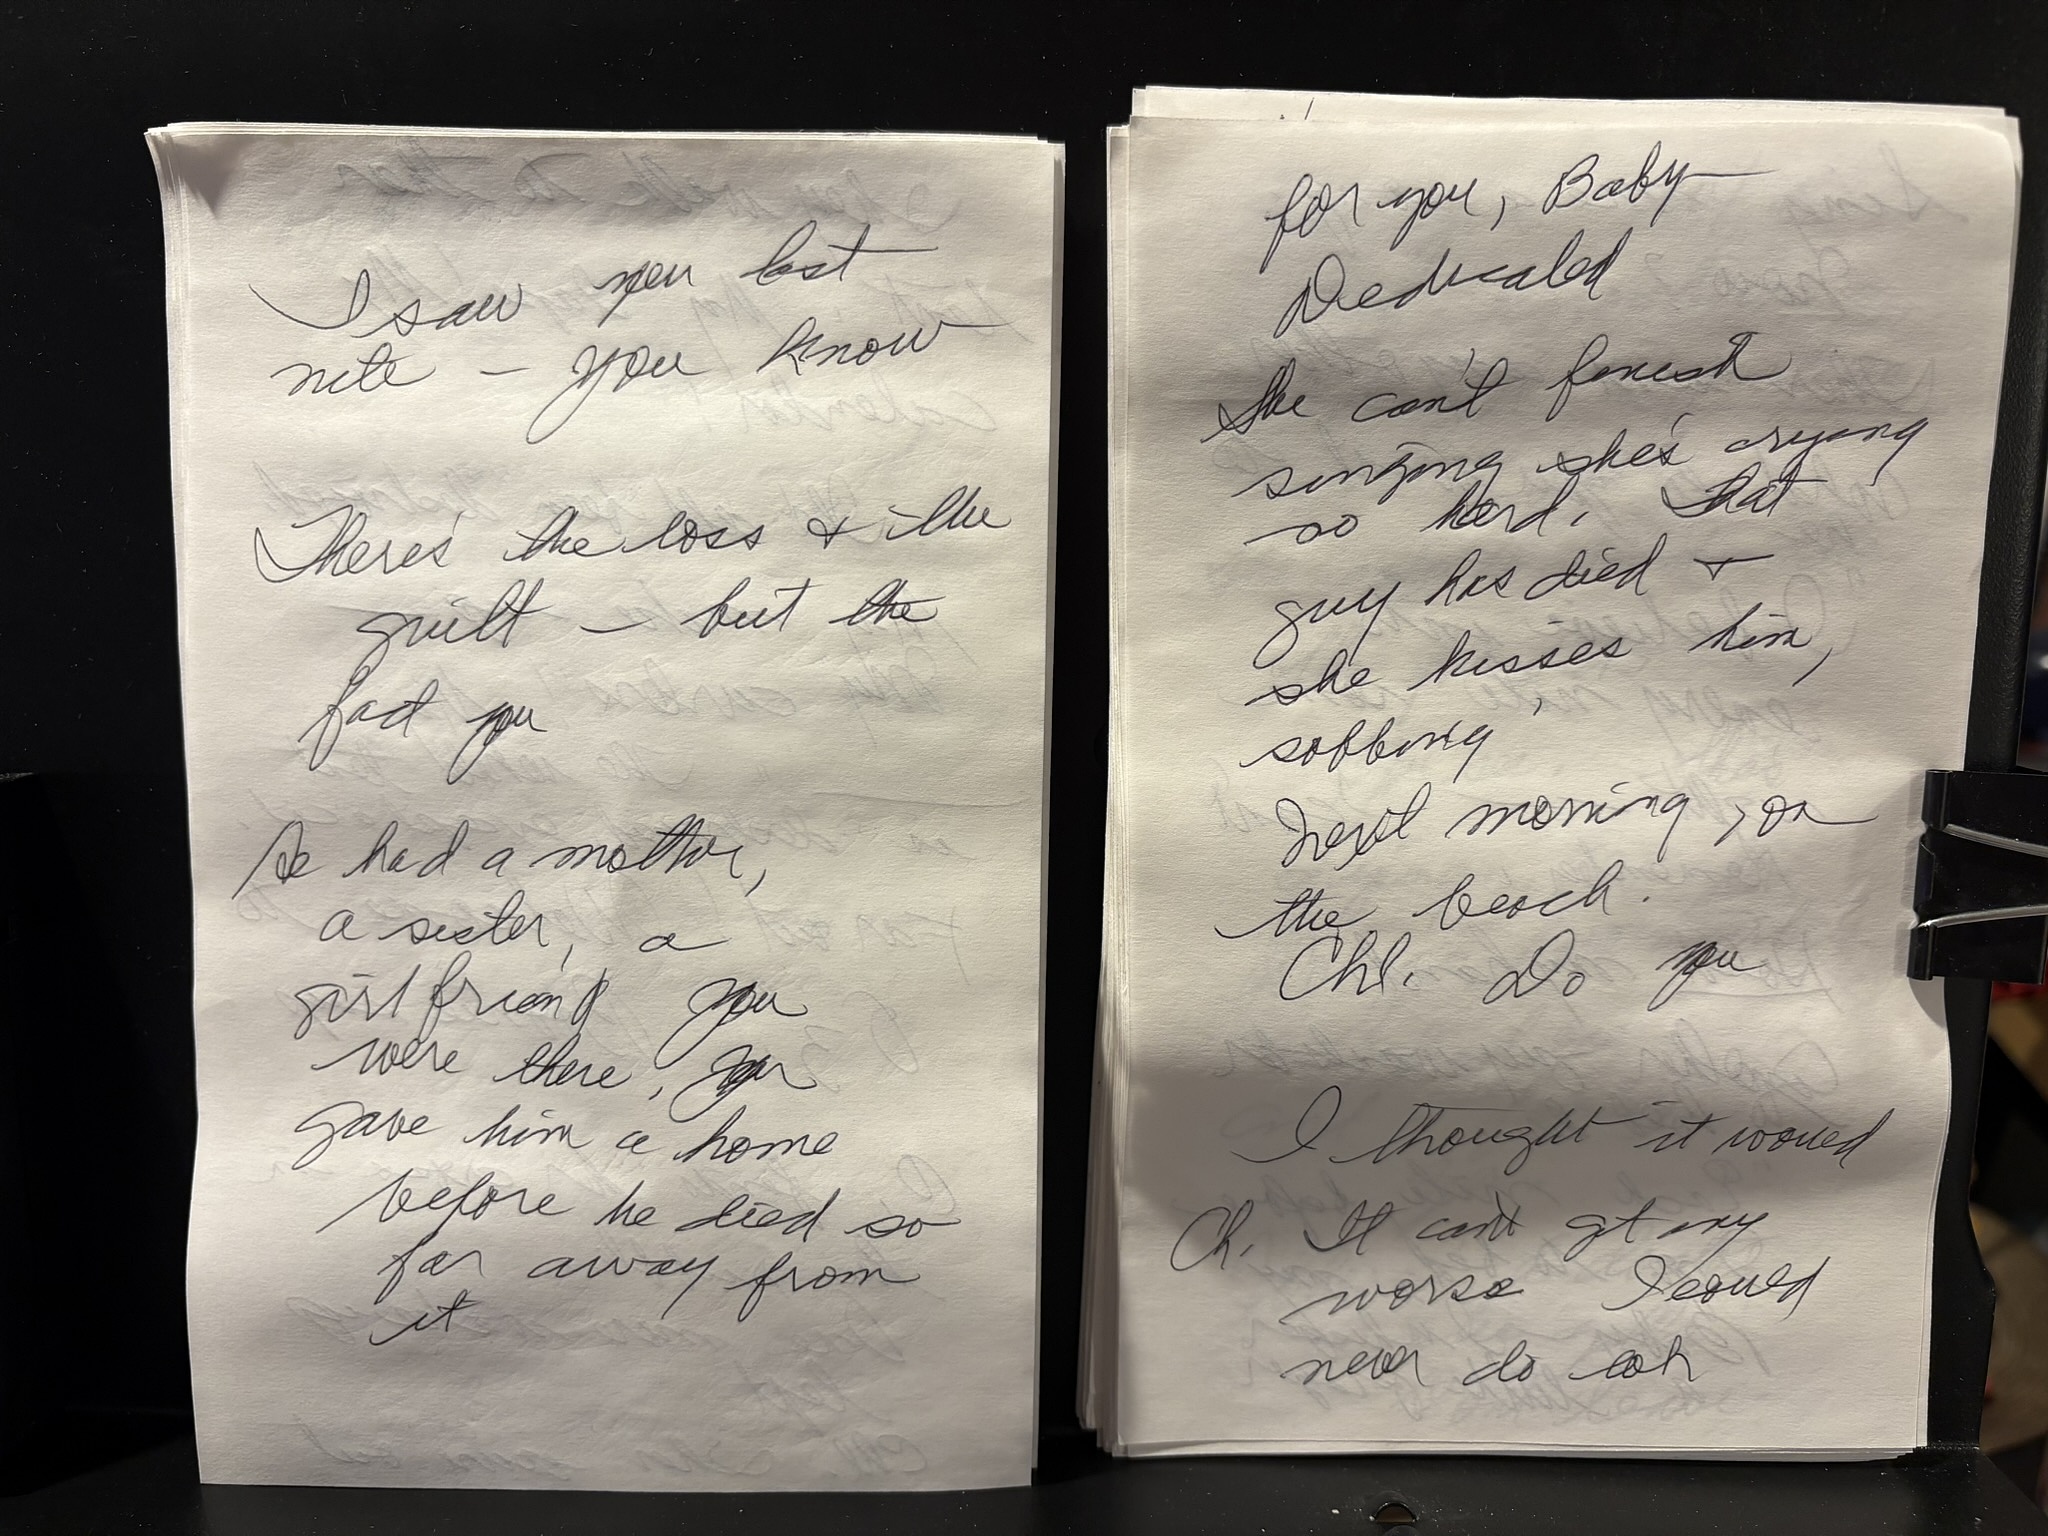 I saw you last
nite – you know
There's the loss & the
guilt – but the
fact you
So had a mother,
a sister, a
girlfriend you
were there, you
gave him a home
before he died so
far away from
it
for you, Baby
Dedicated
She can't finish
singing she's crying
so hard. That
guy has died &
she kisses him,
sobbing
Next morning, on
the beach.
Chl. Do you
I thought it would
Ch. It can't get any
worse I could
never do